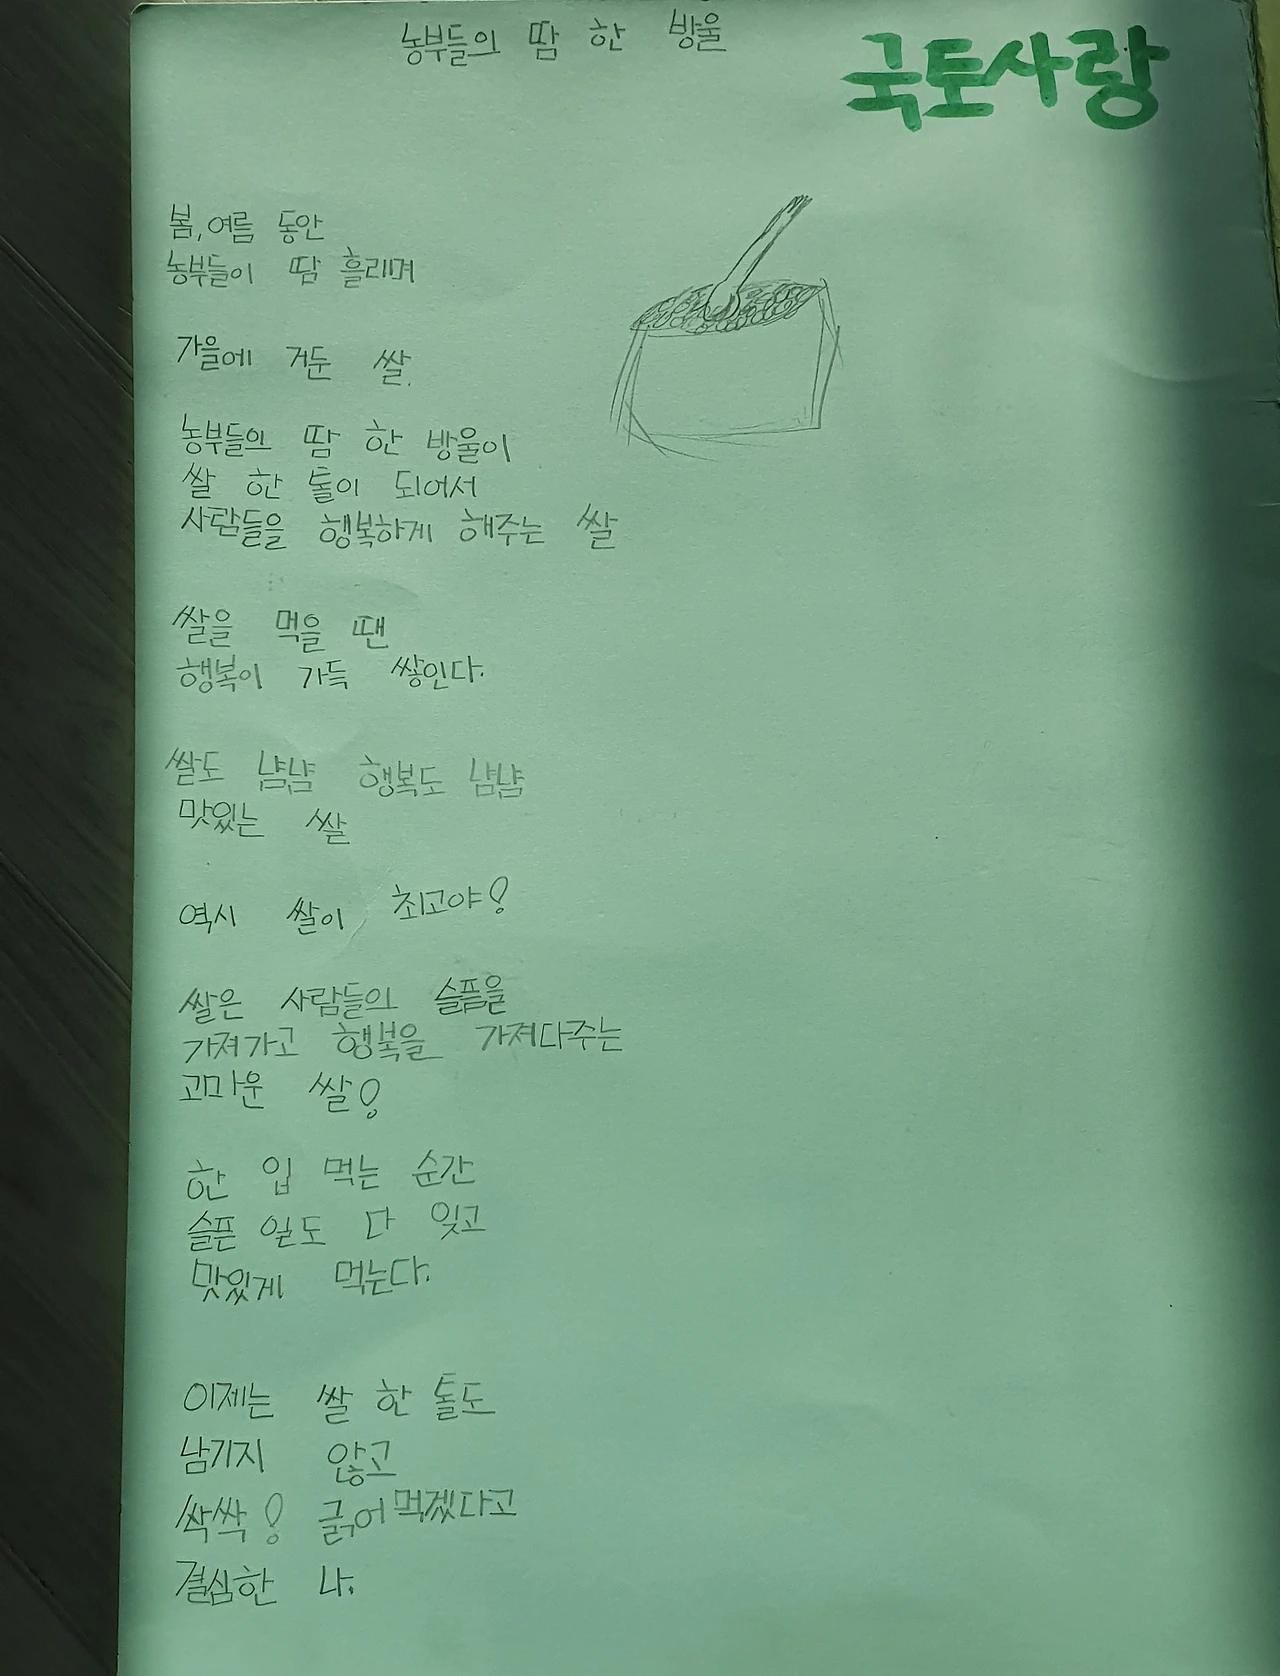 농부들의 땀 한 방울
국토사랑
봄,여름 동안
농부들이 땀 흘리며
가을에 거둔 쌀.
농부들의 땀 한 방울이
쌀 한 톨이 되어서
사람들을 행복하게 해주는 쌀
쌀을 먹을 땐
행복이 가득 쌓인다.
쌀도 냠냠 행복도 냠냠
맛있는 쌀
역시 쌀이 최고야!
쌀은 사람들의 슬픔을
가져가고 행복을 가져다주는
고마운 쌀!
한 입 먹는 순간
슬픈 일도 다 잊고
맛있게 먹는다.
이제는 쌀 한 톨도
남기지 않고
싹싹! 긁어먹겠다고
결심한 나.